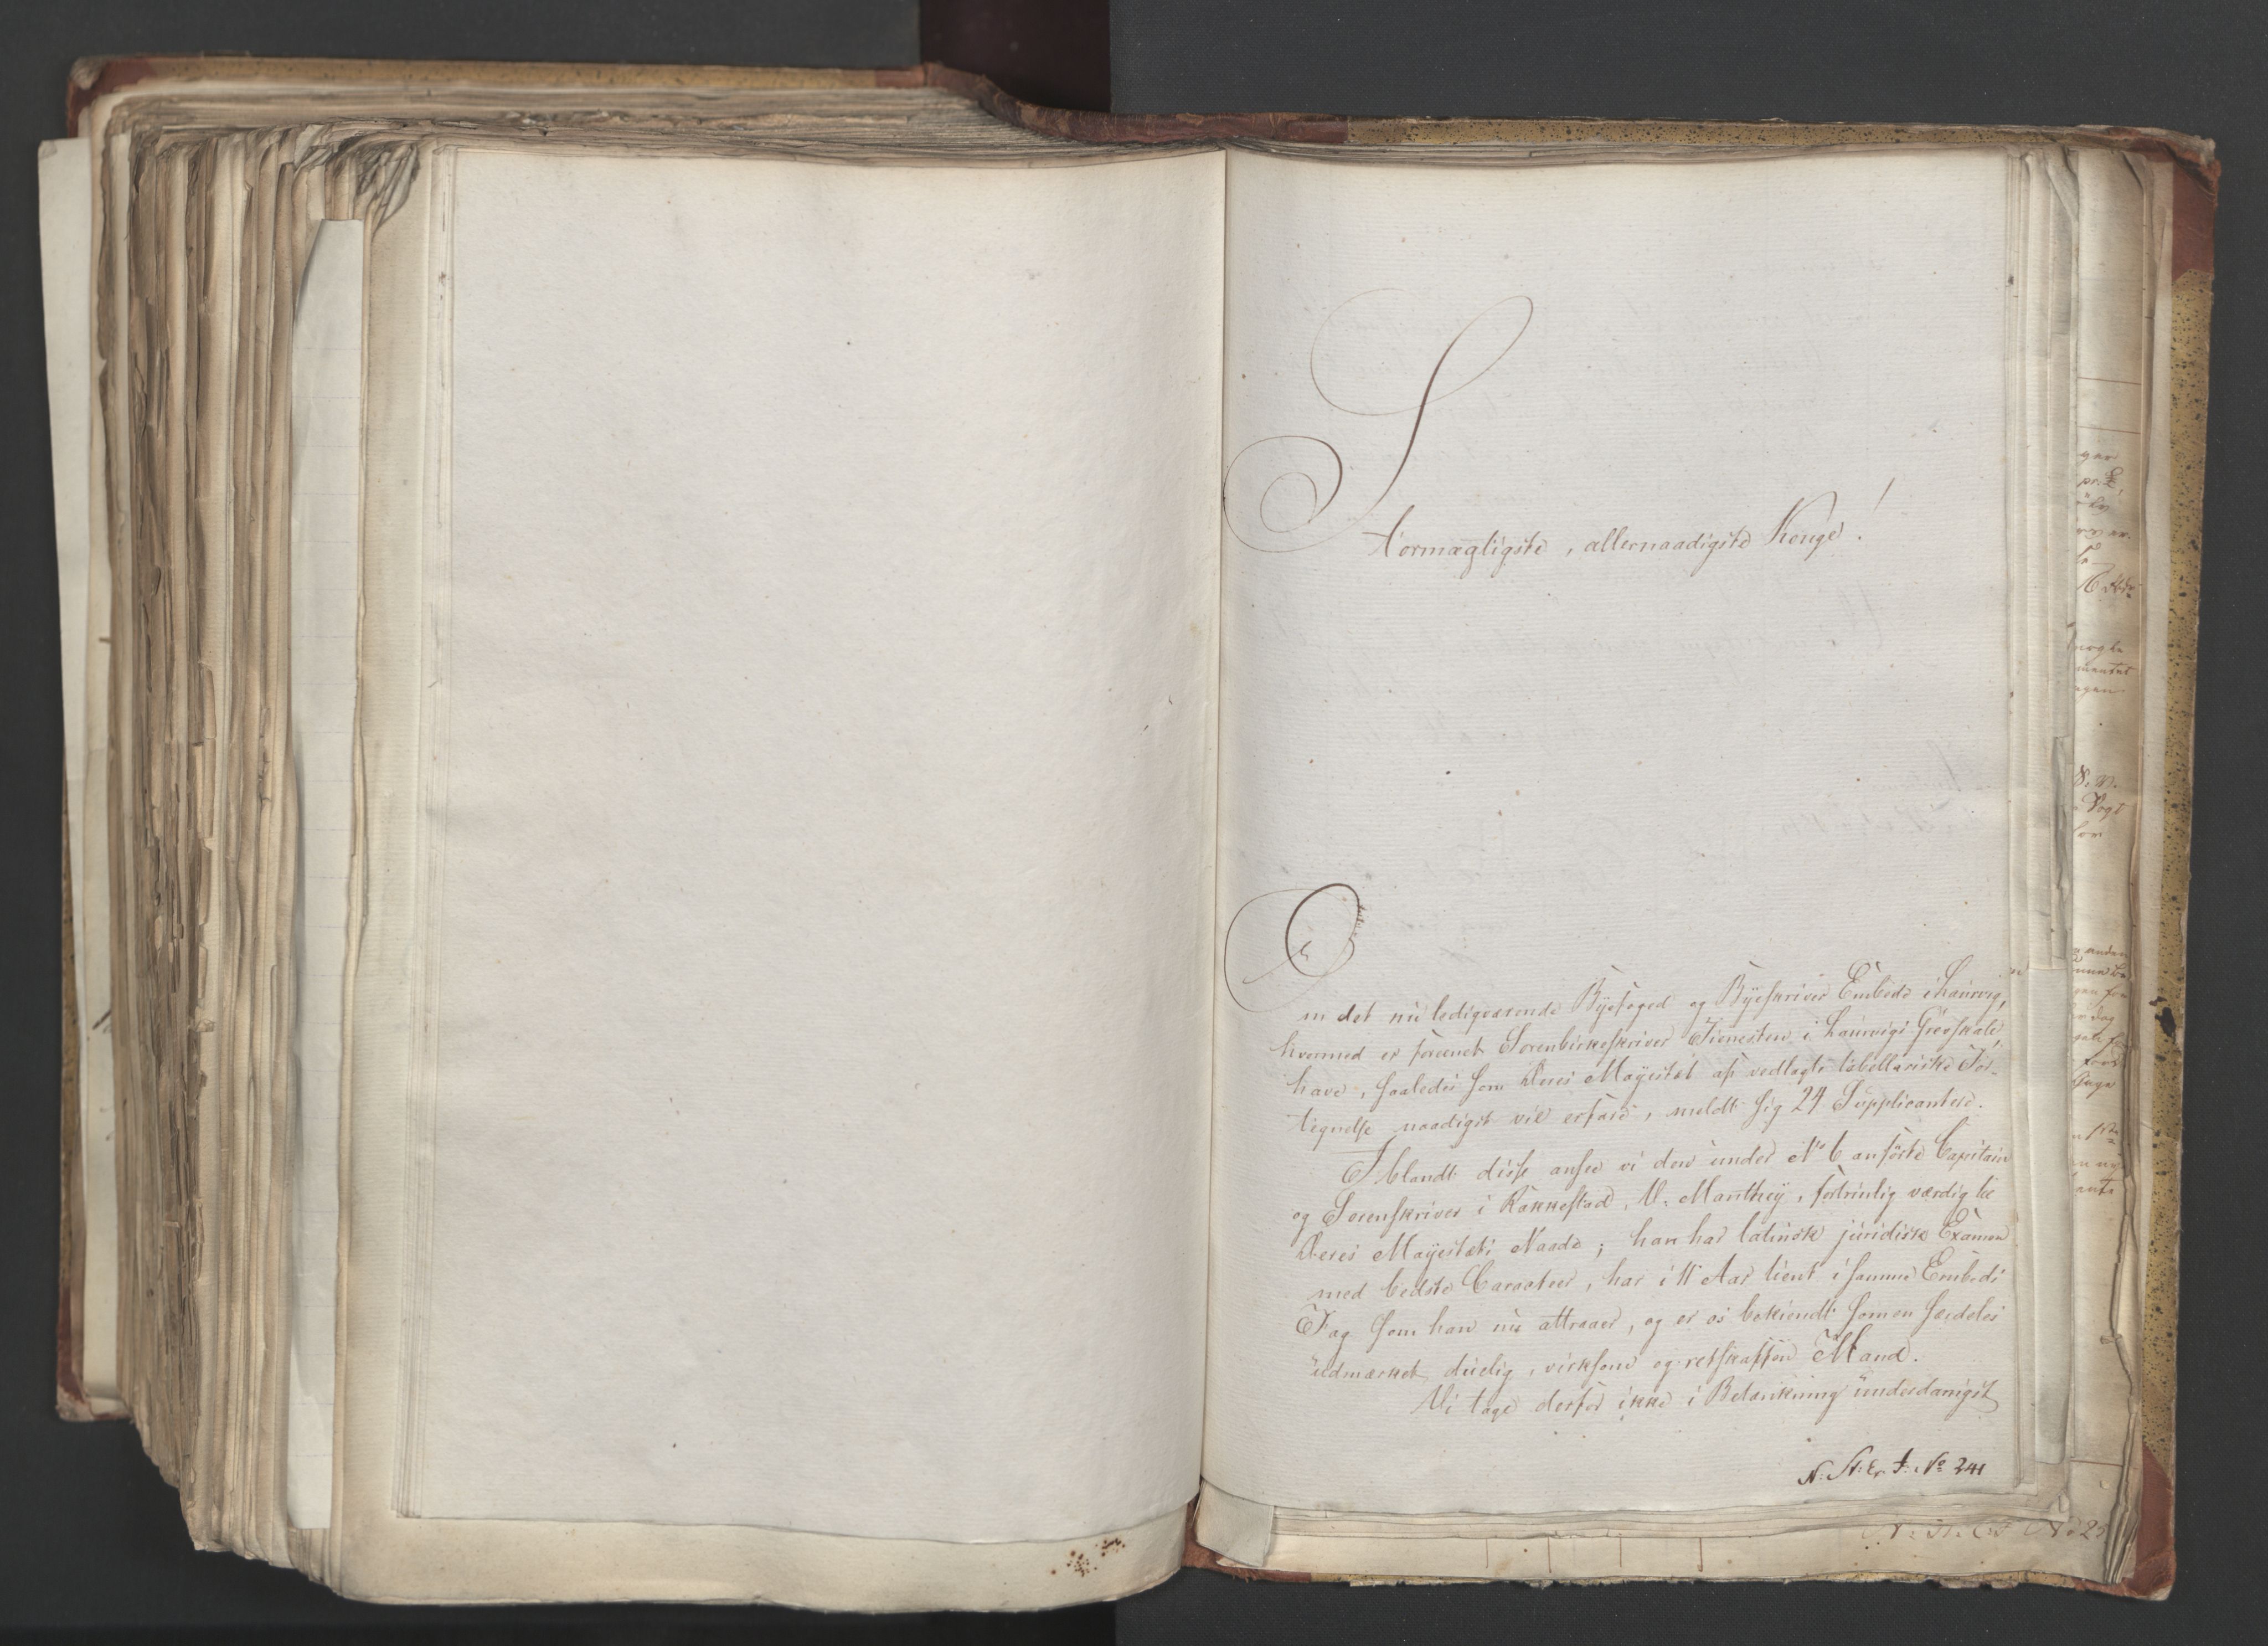 Stormægtigste, allernaadigste Konge!
Om det nu ledigværende Byefoged og Byeskriver Embede i Laurvig,
hvormed er foreenet Sorenbirkeskriver Tienesten i Laurvigs Grevskab,
have, saaledes som Deres Mayestæt af vedlagte tabellariske For-
tegnelse naadigst vil erfare, meldt sig 24 Supplicantere.
Iblandt disse ansee vi den under No 6 anførte Capitain
og Sorenskriver i Rakkestad, V. Manthey, fortrinlig værdig til
Deres Mayestæts Naade; han har latinsk juridisk Examen
med bedste Caracteer, har i 11 Aar tient i samme Embeds
Fag som han nu attraaer, og er os bekiendt som en særdeles
udmærket duelig, virksom og retskaffen Mand.
Vi tage derfor ikke i Betænkning underdanigst
N: St: Cr. J: No 241